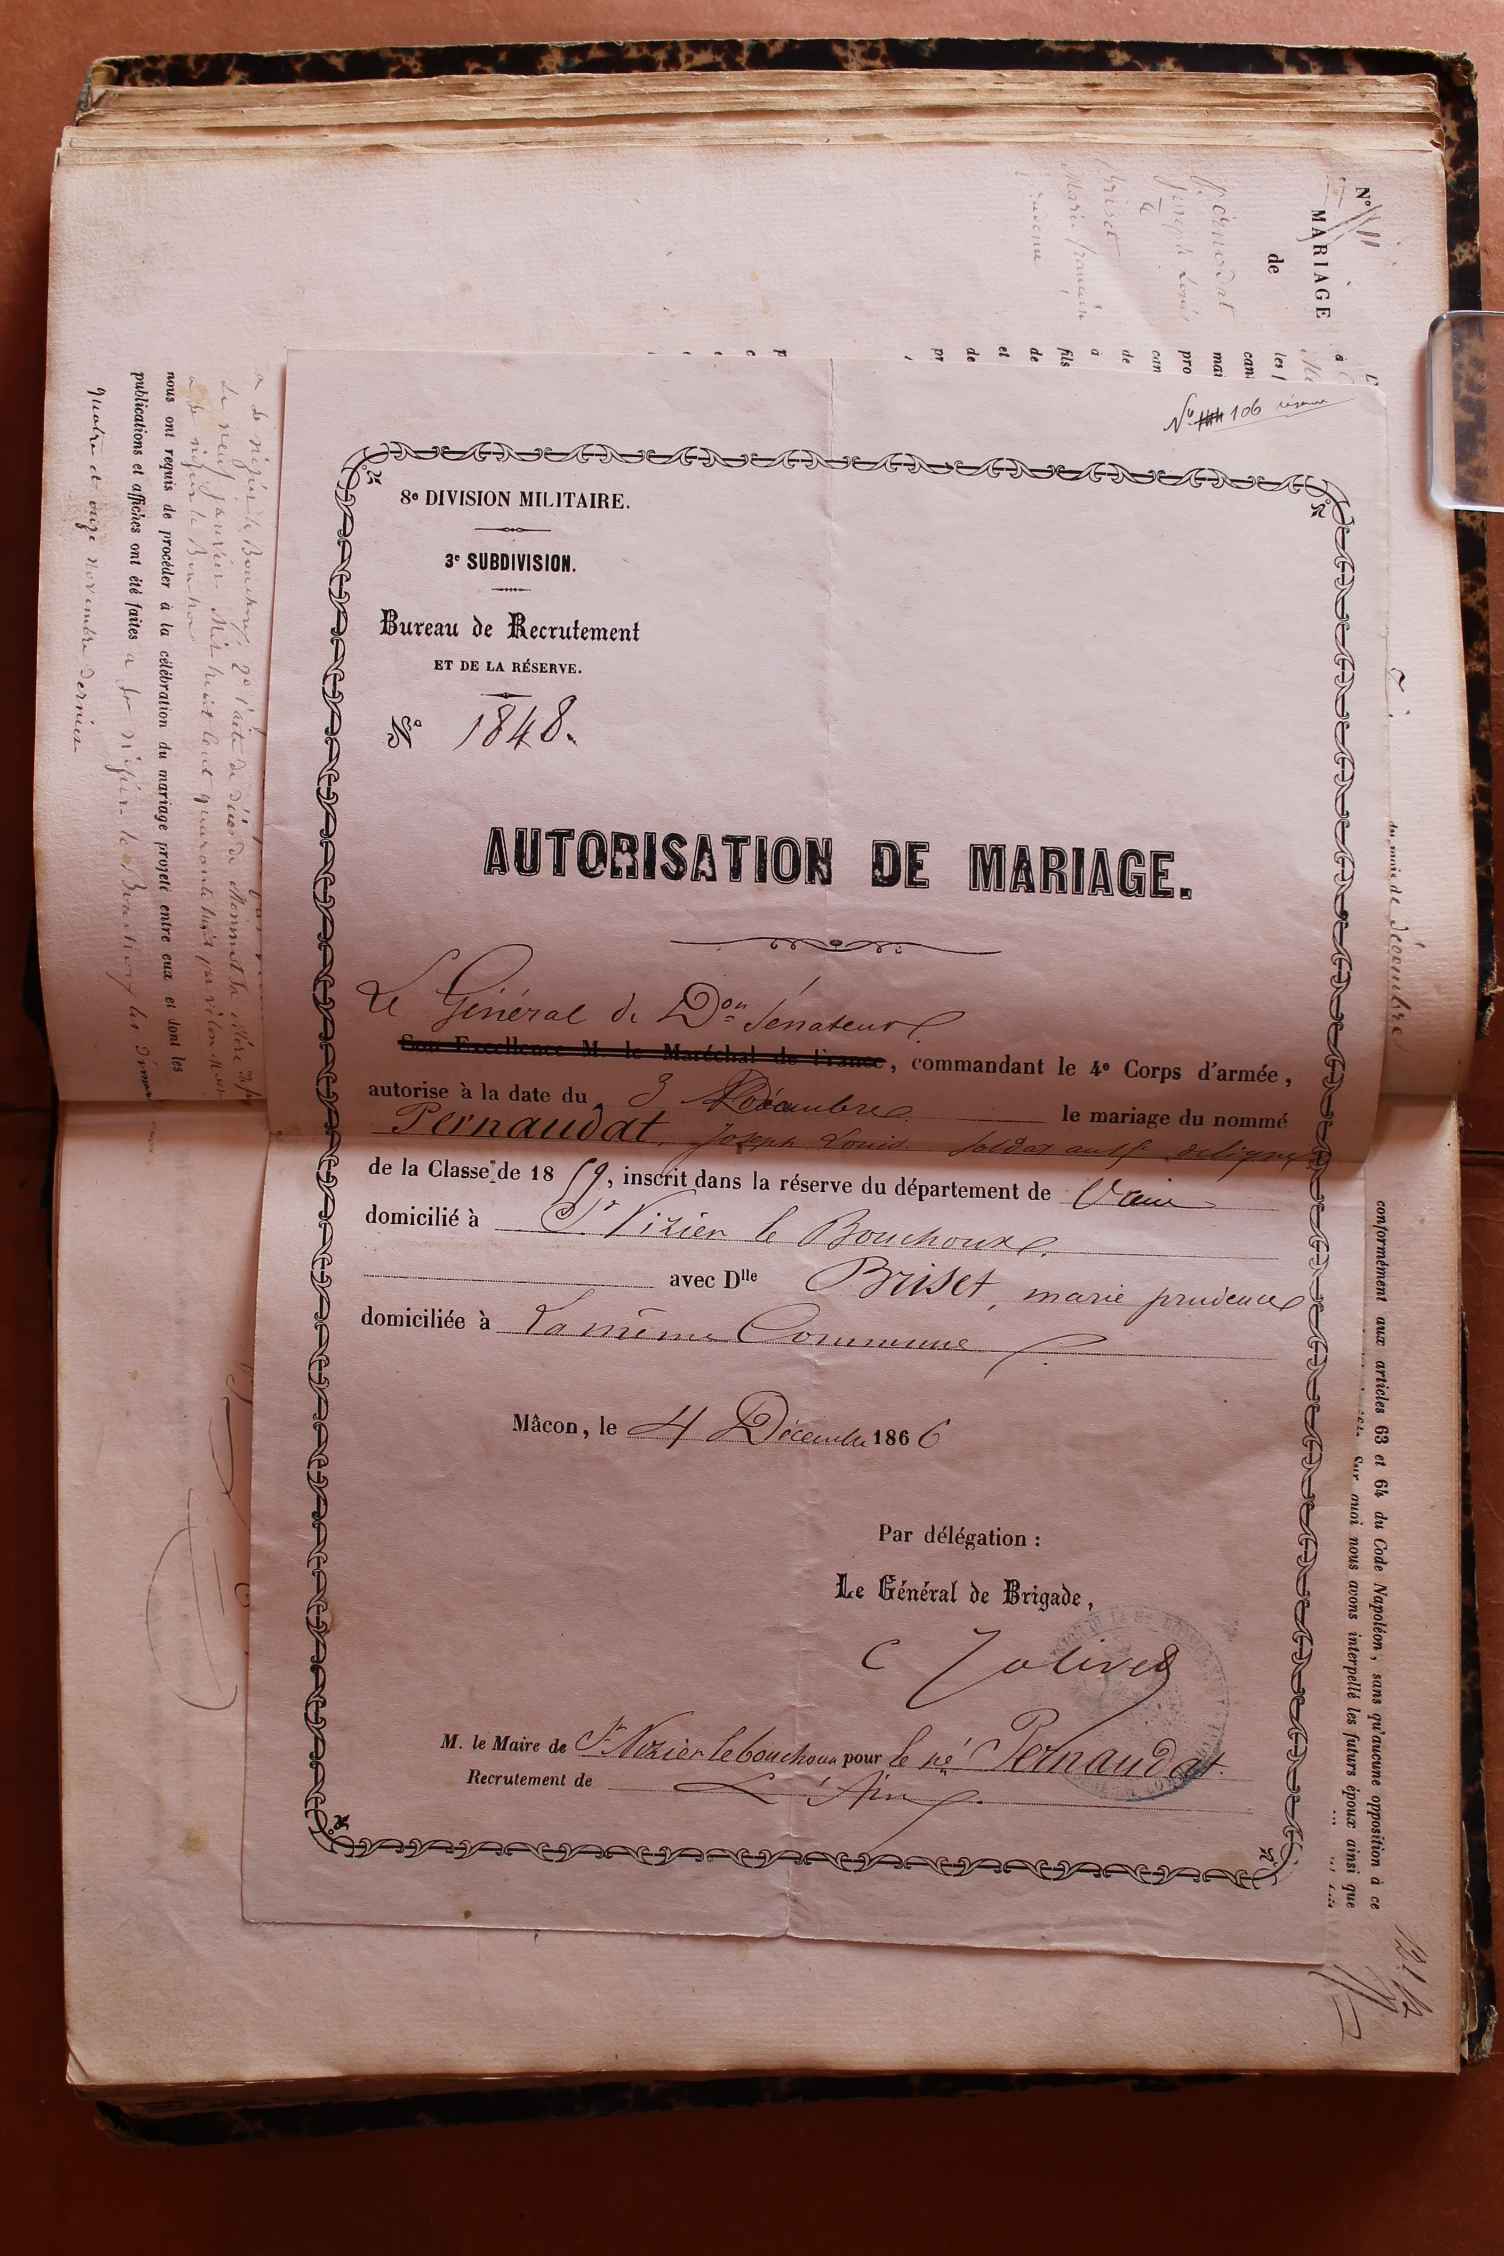 N° 106 réserve
8e DIVISION MILITAIRE.
3e SUBDIVISION.
Bureau de Recrutement
ET DE LA RÉSERVE.
N° 1848.
AUTORISATION DE MARIAGE.
Le Général de Don Sénateur
Son Excellence M. le Maréchal de France, commandant le 4e Corps d'armée,
autorise à la date du 3 Décembre le mariage du nommé
Pernaudat, Joseph Louis soldat au de ligne
de la Classe de 1859, inscrit dans la réserve du département de l'ain
domicilié à St Nizier le Bouchoux
avec Dlle Briset, marie prudence
domiciliée à La même Commune
Mâcon, le 4 Décembre 1866
Par délégation :
Le Général de Brigade,
C Jolivet
M. le Maire de St Nizier le bouchoux pour le né Pernaudat.
Recrutement de L'Ain
N° 11
MARIAGE
de
Pernodat
Joseph Louis
&
Briset
Marie françoise
du mois de décembre
conformément aux articles 63 et 64 du Code Napoléon, sans qu'aucune opposition à ce
Sur quoi nous avons interpellé les futurs époux ainsi que
a St nizier le Bouchoux 2° l'acte de décès de
le neuf janvier Mil huit cent quarante huit
a St nizier le Bouchoux
nous ont requis de procéder à la célébration du mariage projeté entre eux et dont les
publications et affiches ont été faites a St nizier le Bouchoux les
quatre et onze novembre dernier